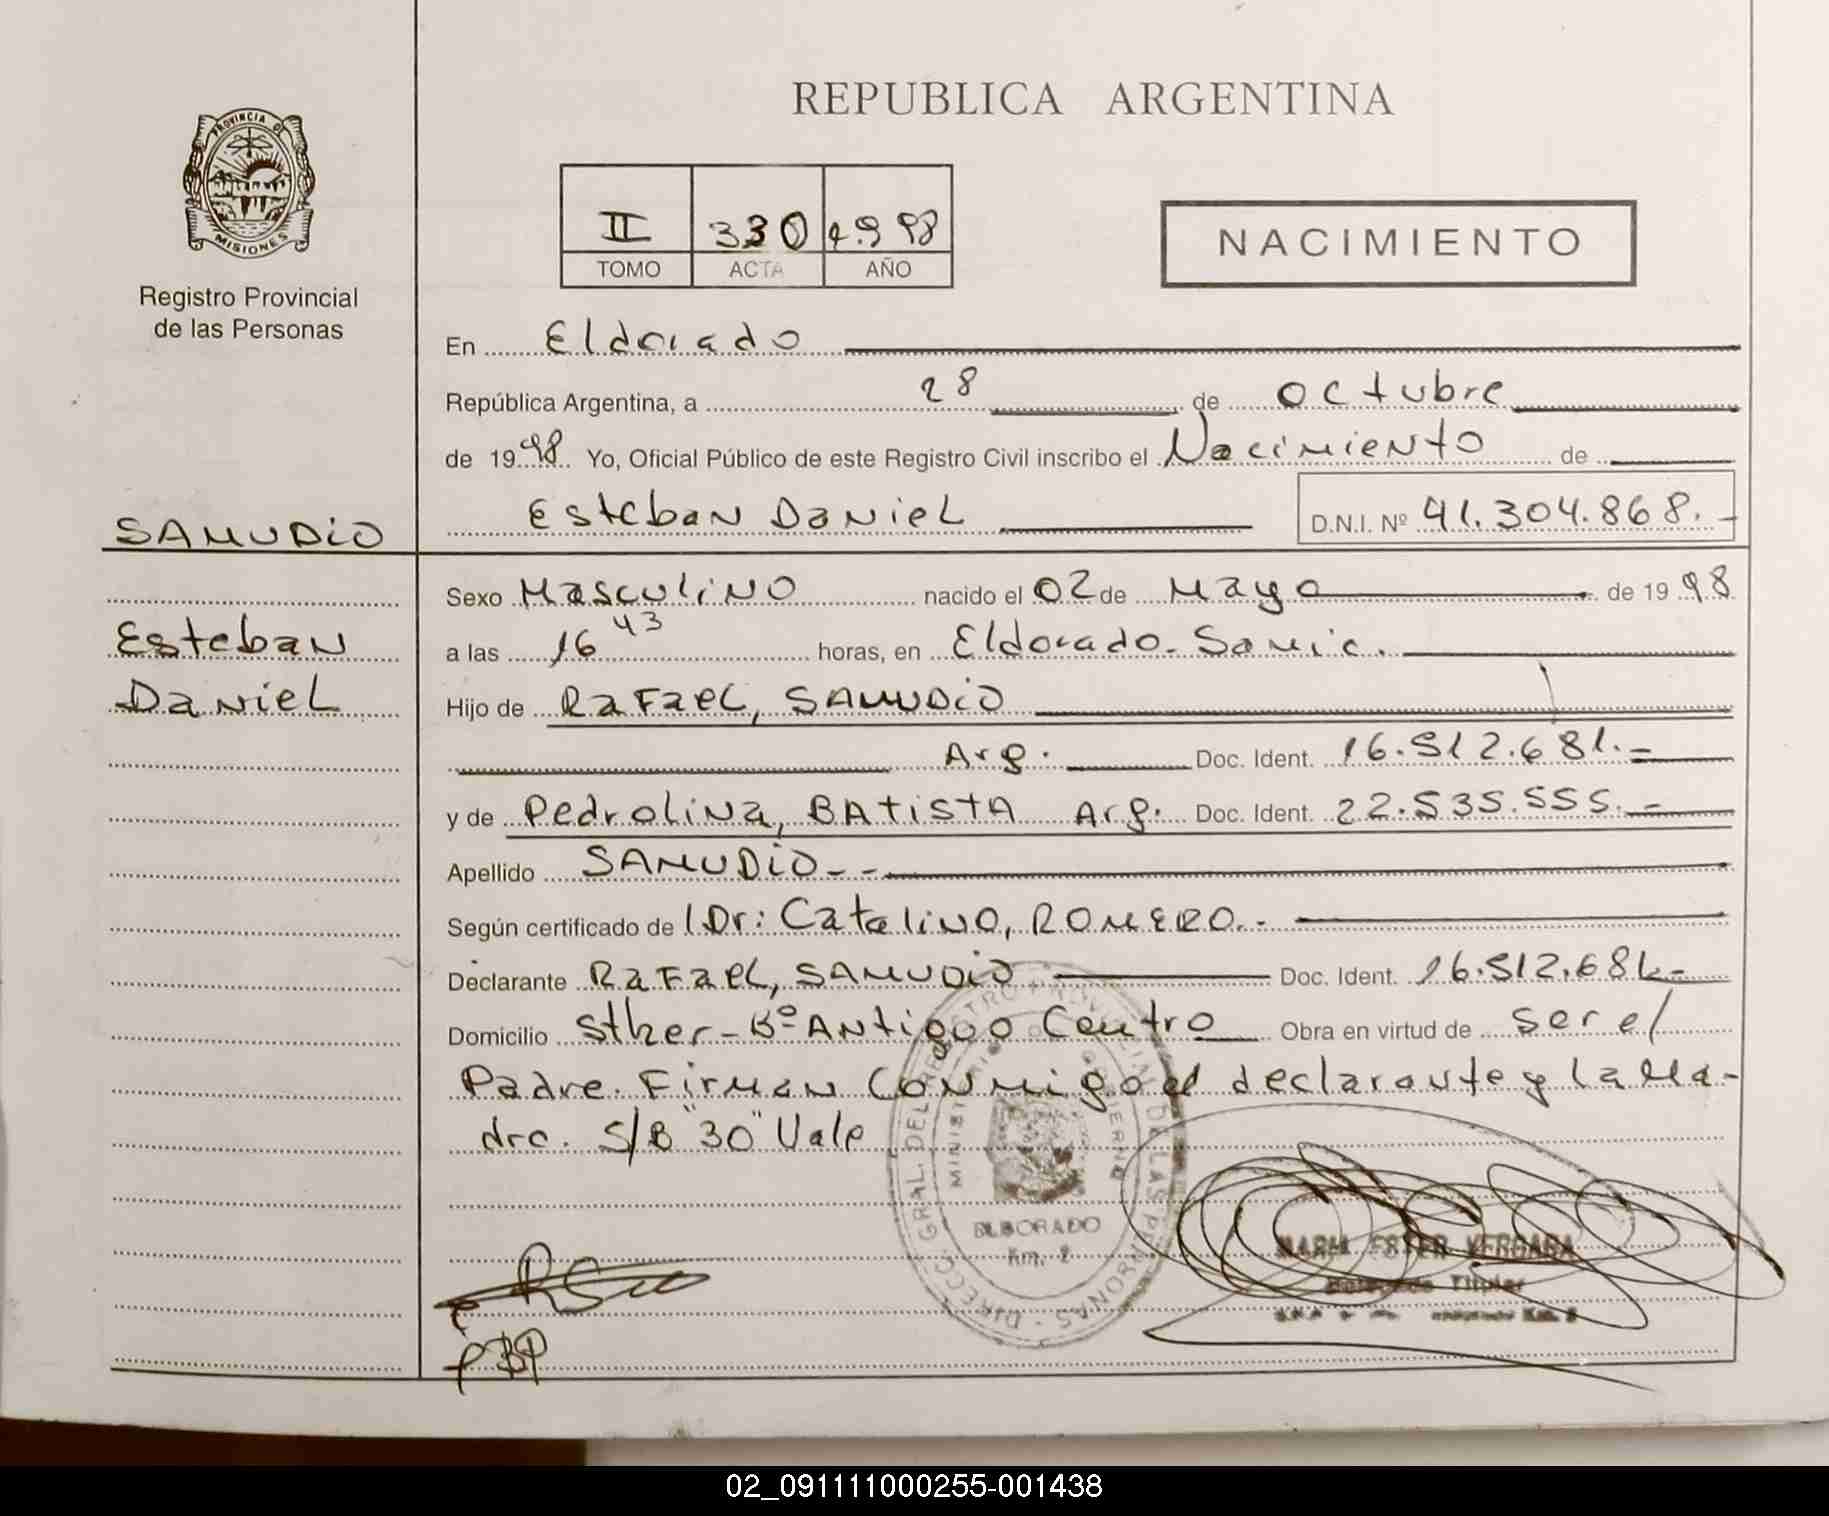 PROVINCIA DE
MISIONES
Registro Provincial
de las Personas
REPUBLICA ARGENTINA
II 330 1998
TOMO ACTA AÑO
NACIMIENTO
En Eldorado
República Argentina, a 28 de octubre
de 1998 Yo, Oficial Público de este Registro Civil inscribo el Nacimiento de
Esteban Daniel D.N.I. Nº 41.304.868.-
SAMUDIO
Esteban
Daniel
Sexo Masculino nacido el 02 de Mayo de 1998
a las 16 43 horas, en Eldorado- Samic.
Hijo de Rafael, SAMUDIO
Arg. Doc. Ident. 16.512.681.-
y de Pedrolina, BAtistA Arg. Doc. Ident. 22.535.555.-
Apellido SAMUDIO--
Según certificado de Dr: Catalino, ROMERO.-
Declarante Rafael, SAMUDIO Doc. Ident. 16.512.681.-
Domicilio Sther-Bº Antiguo Centro Obra en virtud de ser el
Padre. Firman Conmigo el declarante y la Ma-
dre. S/B "30" Vale
DIRECC. GRAL. DEL REGISTRO PROVINCIAL DE LAS PERSONAS -
MINISTERIO GOBIERNO
ELDORADO
Km. 2
MARIA ESTER VERGARA
Delegada Titular
RSco
BP
02_091111000255-001438